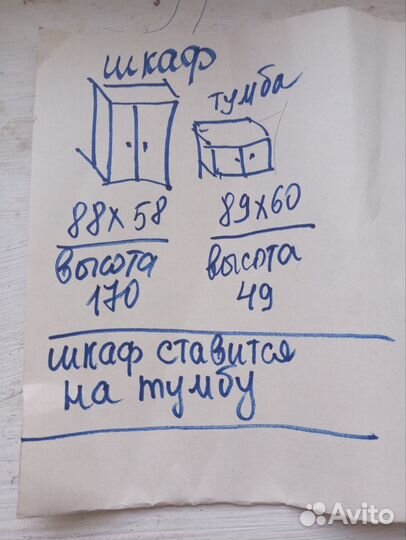 шкаф
тумба
88х58
высота
170
89х60
высота
49
шкаф ставится
на тумбу
Avito